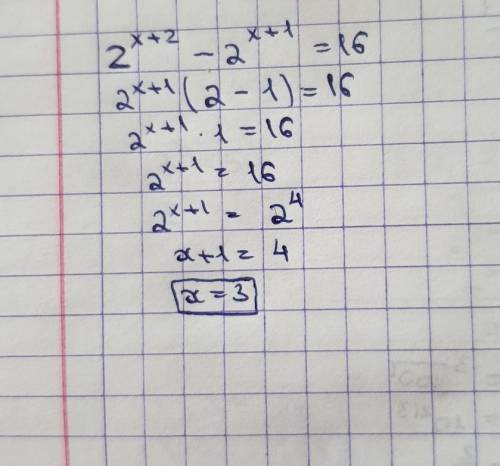 2^{x+2} - 2^{x+1} = 16
2^{x+1} (2 - 1) = 16
2^{x+1} · 1 = 16
2^{x+1} = 16
2^{x+1} = 2^4
x+1 = 4
x = 3